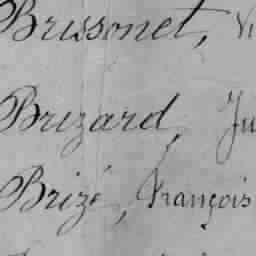 Brissonet, Vi
Brizard, Ju
Brizé, François